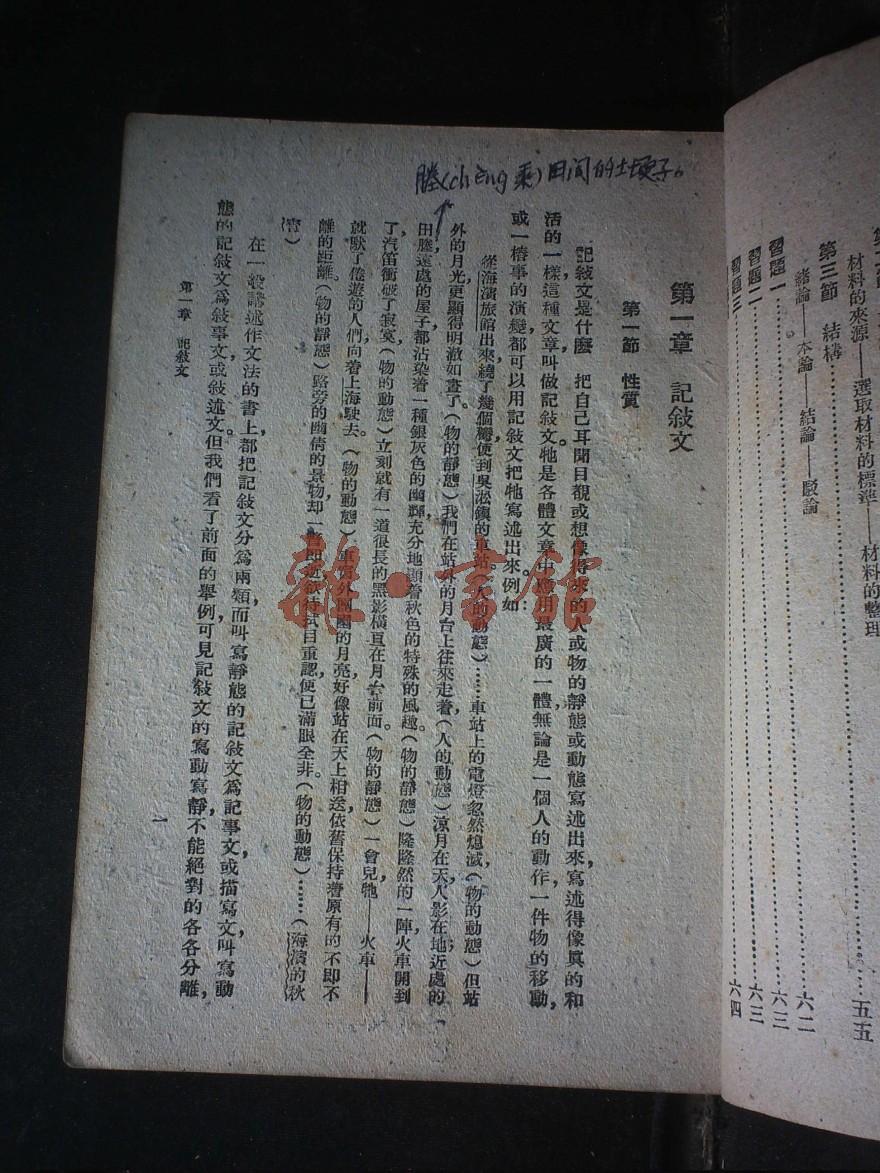 材料的來源——選取材料的標準——材料的整理……五五
第三節 結構……
緒論——本論——結論——駁論
習題一……六二
習題二……六三
習題三……六四
塍(chéng 乘)田间的土埂子。
第一章 記敍文
第一節 性質
記敍文是什麽 把自己耳聞目覩或想像得來的人或物的靜態或動態寫述出來，寫述得像眞的和
活的一樣，這種文章叫做記敍文。牠是各體文章中應用最廣的一體，無論是一個人的動作，一件物的移動，
或一樁事的演變，都可以用記敍文把牠寫述出來。例如：
從海濱旅館出來，繞了幾個彎，便到吳淞鎮的車站。（人的動態）……車站上的電燈忽然熄滅，（物的動態）但站
外的月光，更顯得明澈如晝了。（物的靜態）我們在站外的月台上往來走着，（人的動態）涼月在天，人影在地，近處的
田塍，遠處的屋子，都沾染着一種銀灰色的幽輝，充分地顯着秋色的特殊的風趣。（物的靜態）隆隆然的一陣，火車開到
了，汽笛衝破了寂寞，（物的動態）立刻就有一道很長的黑影，橫亘在月台前面。（物的靜態）一會兒牠——火車——
就馱了倦遊的人們，向着上海駛去。（物的動態）車窗外團團的月亮，好像站在天上相送，依舊保持着原有的不卽不
離的距離。（物的靜態）路旁的幽倩的景物，却一瞥卽逝，欲待拭目重認，便已滿眼全非。（物的動態）……（海濱的秋
宵）
在一般講述作文法的書上，都把記敍文分爲兩類，而叫寫靜態的記敍文爲記事文，或描寫文，叫寫動
態的記敍文爲敍事文，或敍述文。但我們看了前面的舉例，可見記敍文的寫動寫靜，不能絕對的各各分離，
第一章 記敍文
一
雜·書館